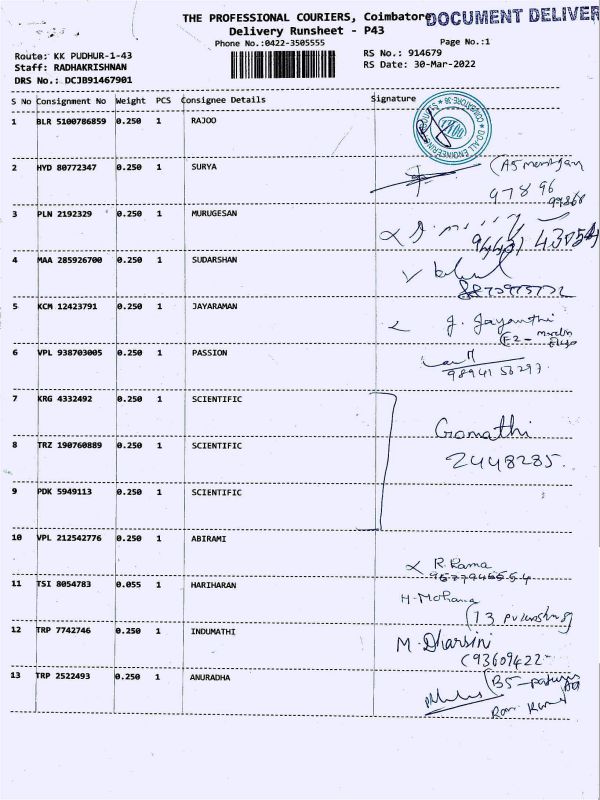 THE PROFESSIONAL COURIERS, Coimbatore
DOCUMENT DELIVER
Delivery Runsheet - P43
Phone No.:0422-3505555
Page No.:1
Route: KK PUDHUR-1-43
RS No.: 914679
Staff: RADHAKRISHNAN
RS Date: 30-Mar-2022
DRS No.: DCJB91467901
S No Consignment No Weight PCS Consignee Details Signature
1 BLR 5100786859 0.250 1 RAJOO
2 HYD 80772347 0.250 1 SURYA
97896
3 PLN 2192329 0.250 1 MURUGESAN
4 MAA 285926700 0.250 1 SUDARSHAN
5 KCM 12423791 0.250 1 JAYARAMAN
J. Jayanthi
6 VPL 938703005 0.250 1 PASSION
98941 56297
7 KRG 4332492 0.250 1 SCIENTIFIC
Gomathi
8 TRZ 190760889 0.250 1 SCIENTIFIC
2448285.
9 PDK 5949113 0.250 1 SCIENTIFIC
10 VPL 212542776 0.250 1 ABIRAMI
R. Rama
11 TSI 8054783 0.055 1 HARIHARAN
H. Mohana
12 TRP 7742746 0.250 1 INDUMATHI
M. Dharsini
(93609422-
13 TRP 2522493 0.250 1 ANURADHA